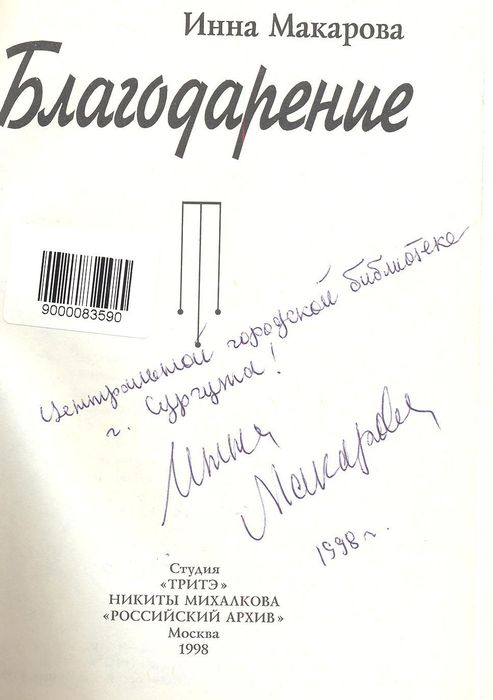 Инна Макарова
Благодарение
9000083590
Центральной городской библиотеке
г. Сургута!
Инна
Макарова
1998 г.
Студия
«ТРИТЭ»
НИКИТЫ МИХАЛКОВА
«РОССИЙСКИЙ АРХИВ»
Москва
1998